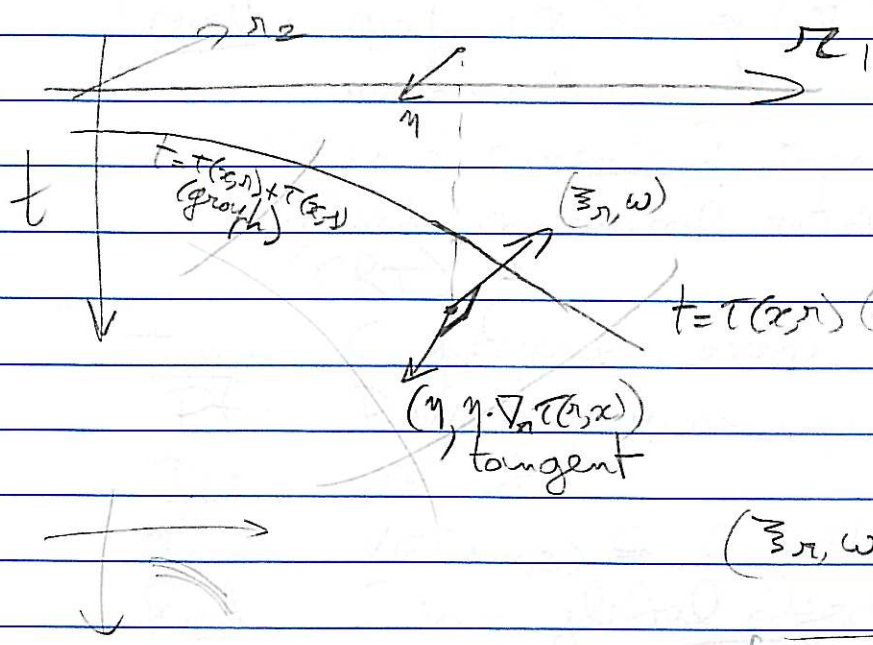 r₂
r₁
η
t
t = τ(x,r) + τ(x,s)
(graph)
(ξᵣ, ω)
t = τ(x,r) (
(η, η·∇ᵣτ(r,x))
tangent
(ξᵣ, ω